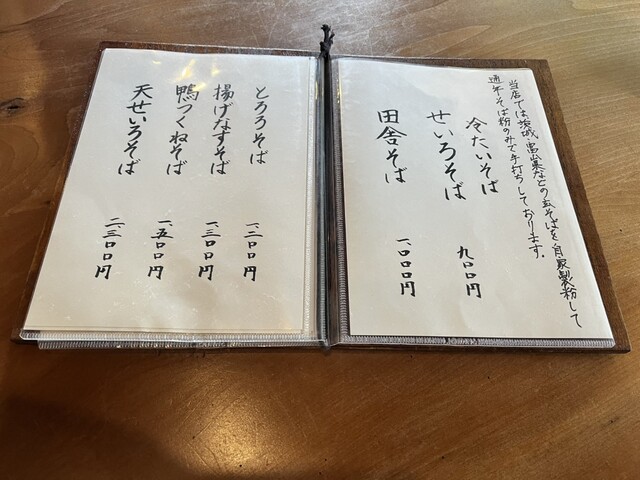 当店では、茨城・富山県などの玄そばを自家製粉して
通年そば粉のみで手打ちしております。
冷たいそば
せいろそば 九〇〇円
田舎そば 一、〇〇〇円
とろろそば 一、二〇〇円
揚げなすそば 一、三〇〇円
鴨つくねそば 一、五〇〇円
天せいろそば 二、三〇〇円